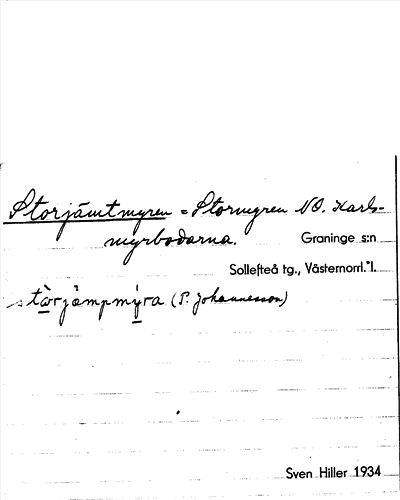 Storjämtmyren = Stormyren NO. Karls-
myrbodarna. Graninge s:n
Sollefteå tg., Västernorrl. l.
stò̱rjàmpmỳ̱ra (P. Johannesson)
Sven Hiller 1934